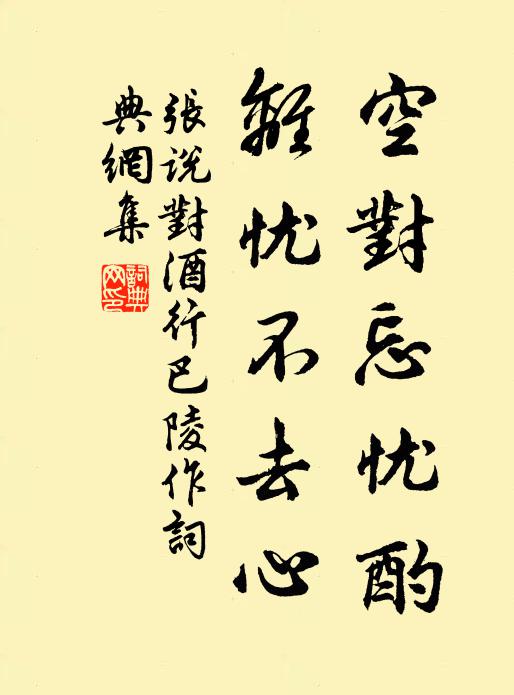 空對忘忧酌
離忧不去心
張説對酒行巴陵作詞
典網集
詞典
网印